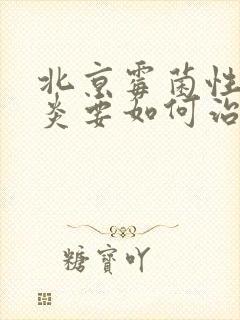 北京霉菌性
炎要如何治
糖寶吖